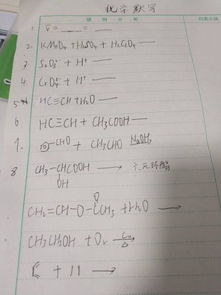 化学默写
1.
2. KMnO₄ + H₂SO₄ + H₂C₂O₄ —
3. S₂O₃²⁻ + H⁺ —
4. CrO₄²⁻ + H⁺ —
5. HC≡CH + H₂O —
6 HC≡CH + CH₃COOH —
7. CHO + CH₃CHO NaOH
8 CH₃-CHCOOH → 六元环酯
OH
O
CH₂=CH-O-CCH₃ + H₂O →
CH₃CH₂OH + O₂ Cu △ →
+ →